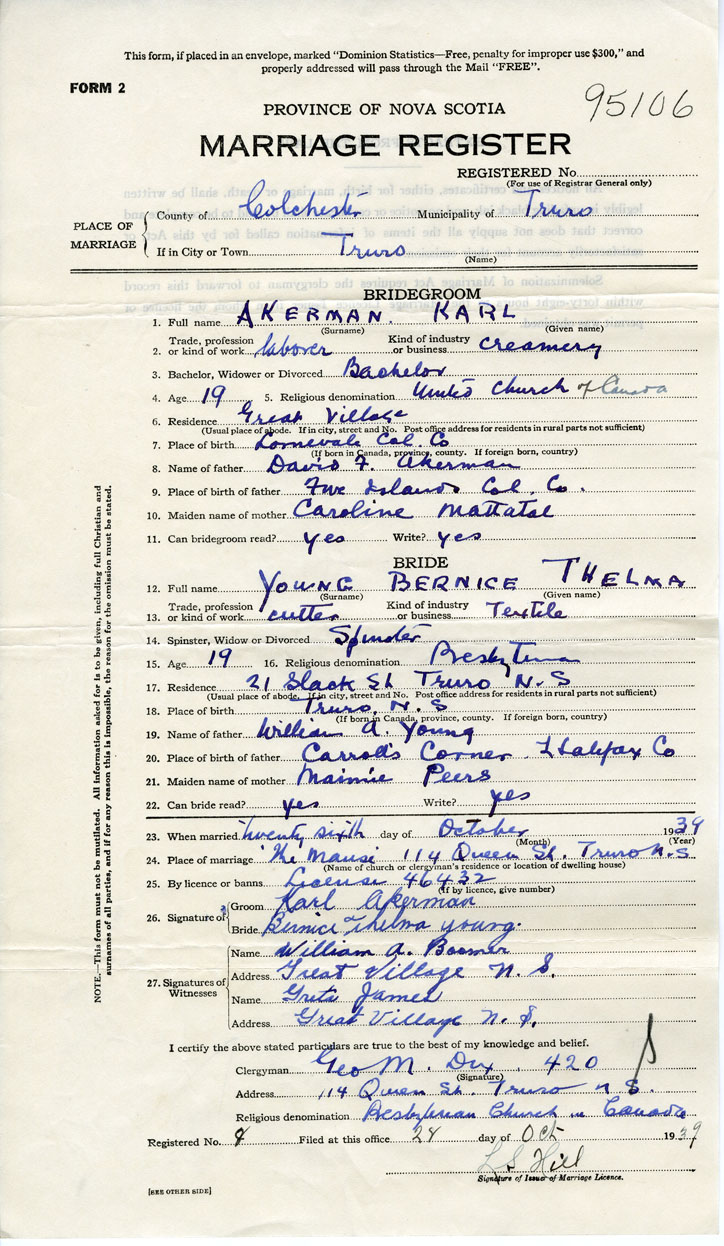 This form, if placed in an envelope, marked "Dominion Statistics—Free, penalty for improper use $300," and
properly addressed will pass through the Mail "FREE".
FORM 2
95106
PROVINCE OF NOVA SCOTIA
MARRIAGE REGISTER
REGISTERED No.
(For use of Registrar General only)
PLACE OF MARRIAGE
County of Colchester Municipality of Truro
If in City or Town Truro
(Name)
BRIDEGROOM
1. Full name AKERMAN. KARL
(Surname) (Given name)
2. Trade, profession or kind of work laborer Kind of industry or business creamery
3. Bachelor, Widower or Divorced Bachelor
4. Age 19 5. Religious denomination United Church of Canada
6. Residence Great Village
(Usual place of abode. If in city, street and No. Post office address for residents in rural parts not sufficient)
7. Place of birth Lornevale Col. Co
(If born in Canada, province, county. If foreign born, country)
8. Name of father David F. Akerman
9. Place of birth of father Five Islands Col Co.
10. Maiden name of mother Caroline Mattatal
11. Can bridegroom read? yes Write? yes
BRIDE
12. Full name YOUNG BERNICE THELMA
(Surname) (Given name)
13. Trade, profession or kind of work cutter Kind of industry or business Textile
14. Spinster, Widow or Divorced Spinster
15. Age 19 16. Religious denomination Presbyterian
17. Residence 21 Slack St Truro N.S
(Usual place of abode. If in city, street and No. Post office address for residents in rural parts not sufficient)
18. Place of birth Truro, N.S
(If born in Canada, province, county. If foreign born, country)
19. Name of father William A. Young
20. Place of birth of father Carroll's Corner Halifax Co
21. Maiden name of mother Maimie Peers
22. Can bride read? yes Write? yes
23. When married twenty sixth day of October 1939
(Month) (Year)
24. Place of marriage The Manse 114 Queen St. Truro N.S
(Name of church or clergyman's residence or location of dwelling house)
25. By licence or banns License 46432
(If by licence, give number)
26. Signature of
Groom Karl Akerman
Bride Bernice Thelma Young.
27. Signatures of Witnesses
Name William A. Boomer
Address Great Village N. S.
Name Greta James
Address Great Village N. S.
I certify the above stated particulars are true to the best of my knowledge and belief.
Clergyman Geo M. Dix 420
(Signature)
Address 114 Queen St. Truro N S.
Religious denomination Presbyterian Church in Canada
Registered No. 8 Filed at this office 24 day of Oct 1939
L S Hill
Signature of Issuer of Marriage Licence.
[SEE OTHER SIDE]
NOTE.—This form must not be mutilated. All information asked for is to be given, including full Christian and
surnames of all parties, and if for any reason this is impossible, the reason for the omission must be stated.